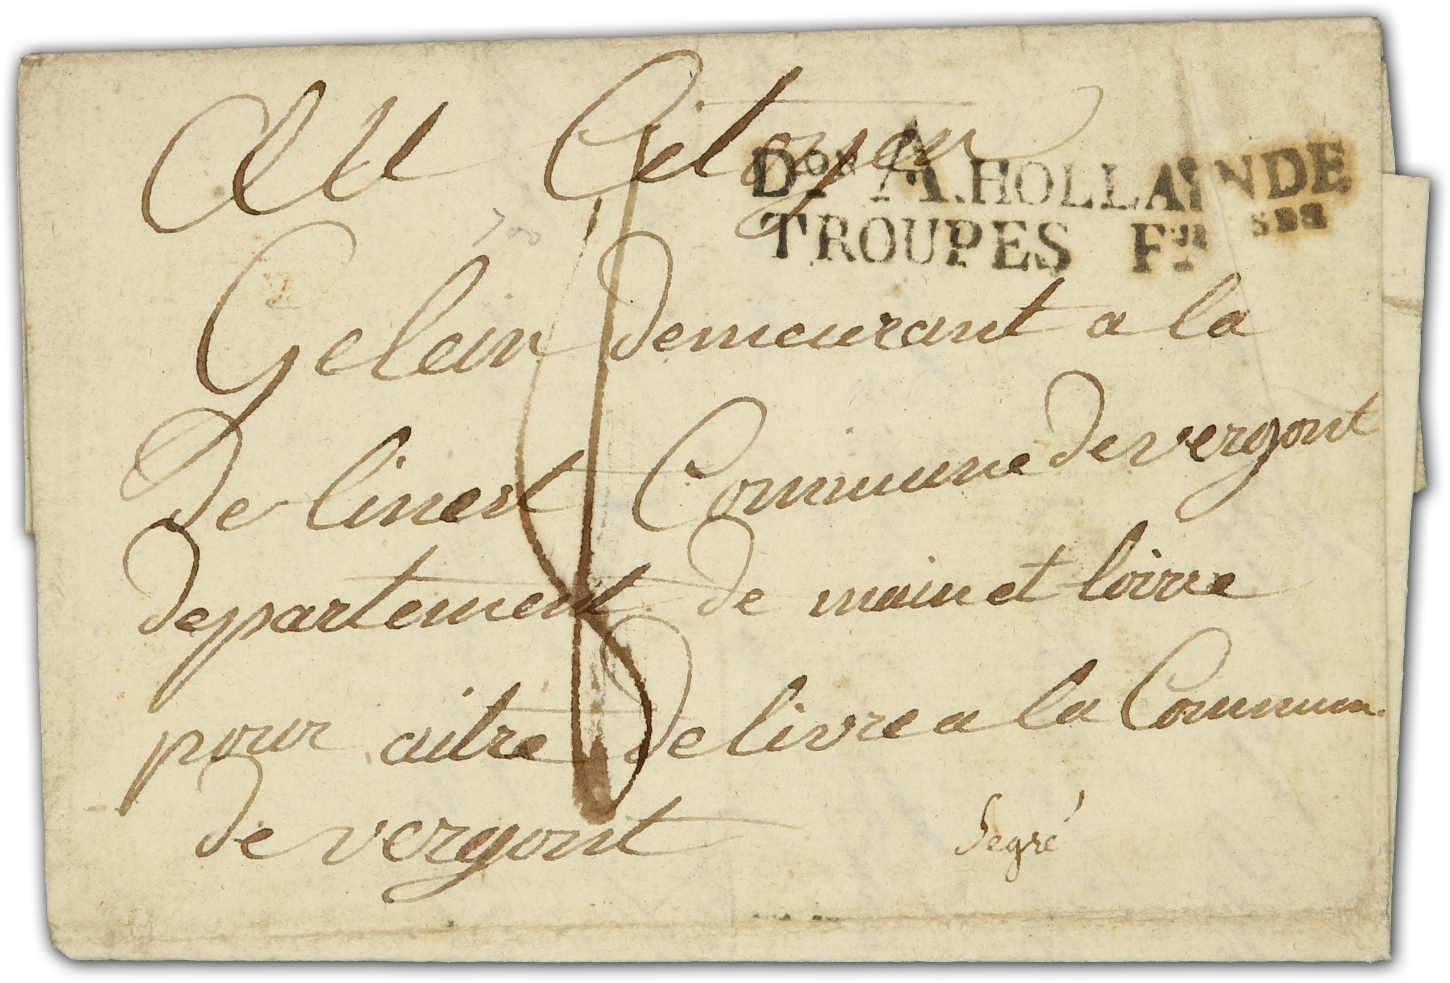 Au Citoyen
Don A. HOLLANDE
TROUPES Frses
Gelein demeurant a la
De linert Commune de vergont
departement de main et loirre
pour aitre de livre a la Commun
de vergont
Segré